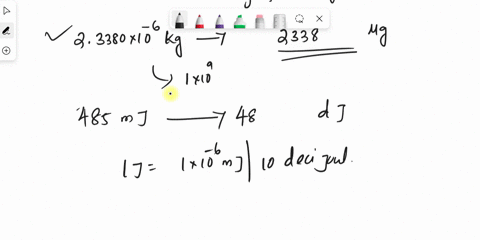 2.3380×10⁻⁶ kg → 2338 μg
1×10⁹
485 mJ → 48 dJ
1J = 1×10⁻⁶ mJ | 10 decijoul.